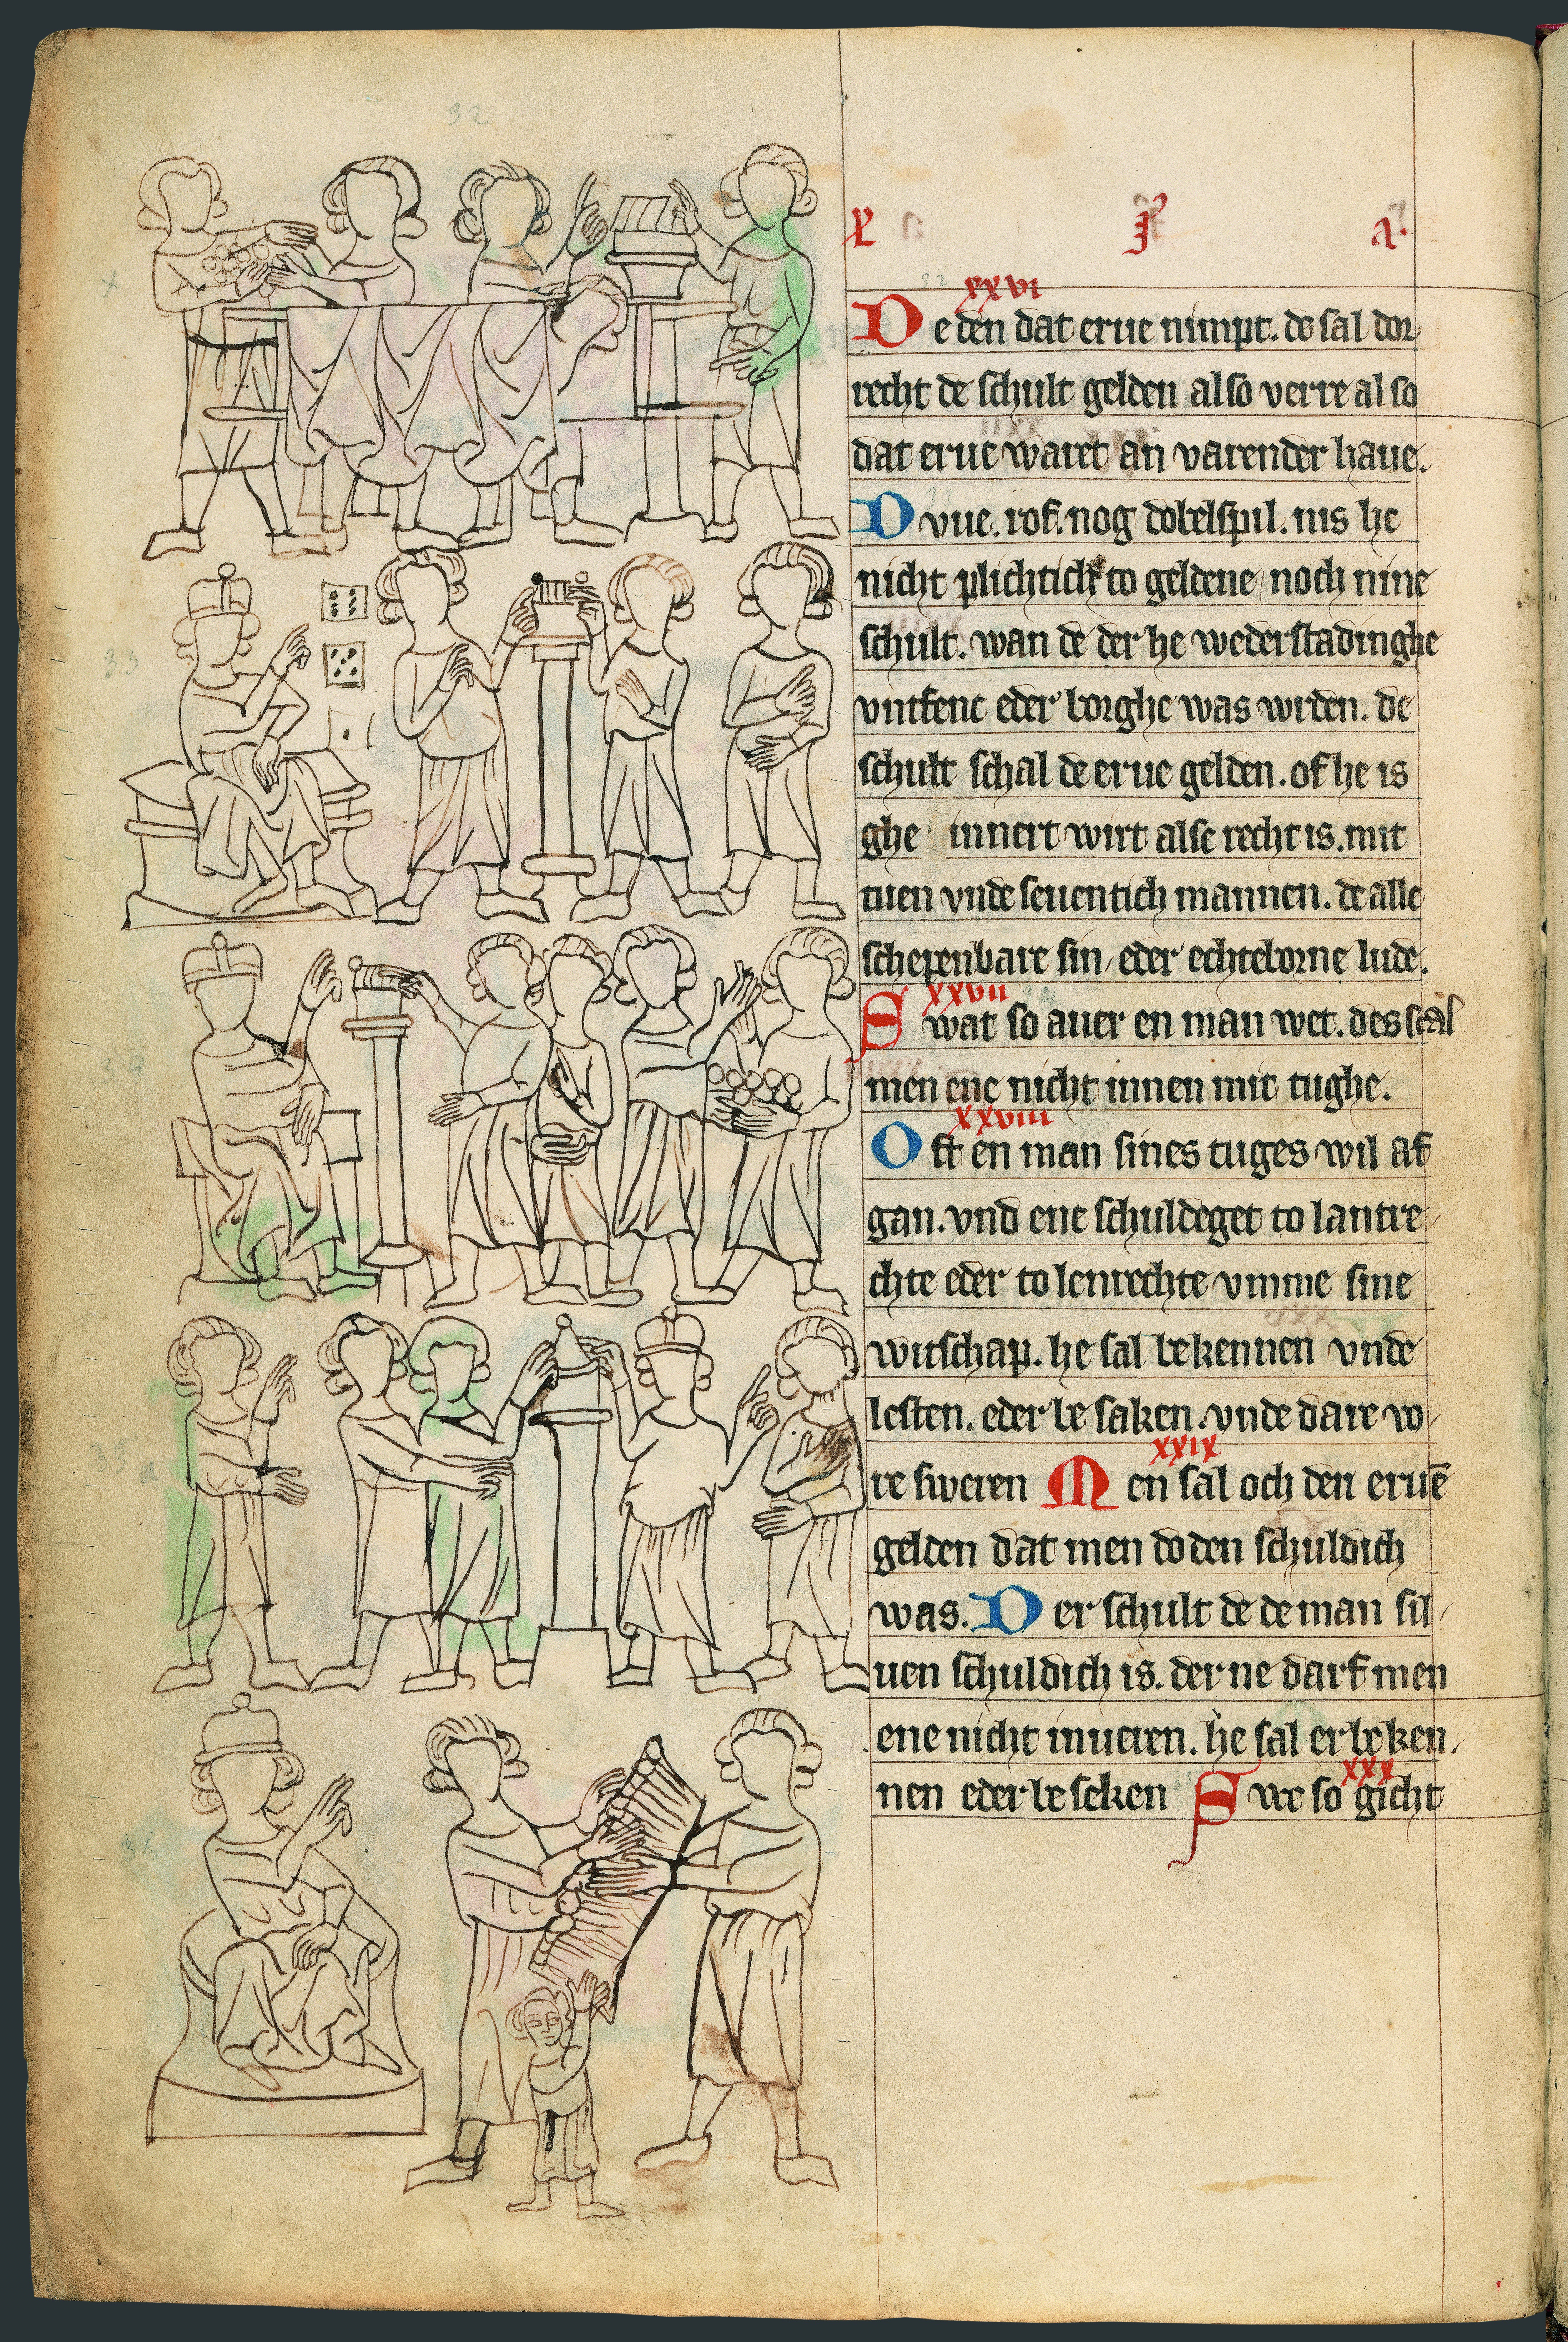 xxvi
De den dat erue nimpt. de sal dor
recht de schult gelden also verre al so
dat erue waret an varender haue.
Dvue. rof. nog dobelspil. nis he
nicht plichtich to geldene noch nine
schult. wan de der he wederstadinghe
vntfenc eder borghe was wrden. de
schult schal de erue gelden. of he is
ghe innert wirt alse recht is. mit
tuen vnde seuentich mannen. de alle
schepenbare sin eder echteborne lude.
xxvii
Swat so auer en man wet. des scal
men ene nicht innen mit tughe.
xxviii
Oft en man sines tuges wil af
gan. vnd ene schuldeget to lantre
chte eder to lenrechte vmme sine
witschap. he sal bekennen vnde
lesten. eder be saken. vnde dare vo
xxix
re sweren Men sal och den eruē
gelden dat men doden schuldich
was. Der schult de de man sil
uen schuldich is. der ne darf men
ene nicht inueren. he sal er beken
xxx
nen eder be seken Swe so gicht